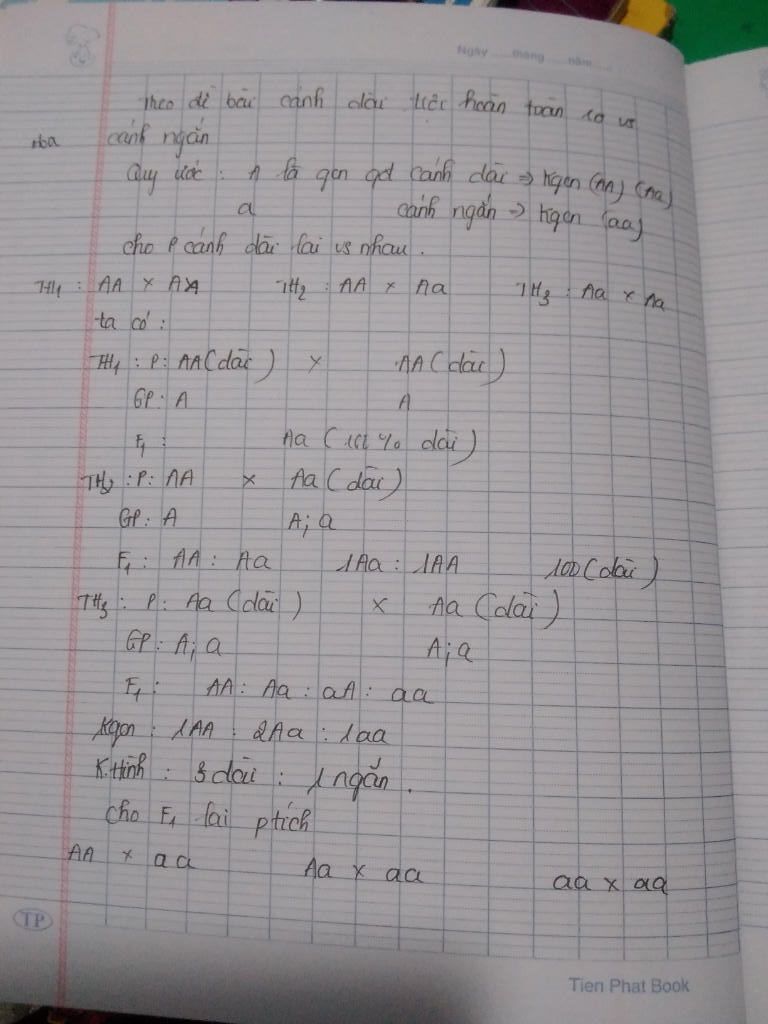 Ngày ..... tháng ..... năm .....
Theo đề bài cánh dài hoàn toàn so vs
cánh ngắn
Quy ước : A là gen qđ cánh dài ⇒ Kgen (AA) (Aa)
a cánh ngắn ⇒ Kgen (aa)
cho P cánh dài lai vs nhau .
TH1 : AA × AA TH2 : AA × Aa TH3 : Aa × Aa
ta có :
TH1 : P: AA (dài) × AA (dài)
GP: A A
F1 : Aa ( % dài)
TH2 : P: AA × Aa (dài)
GP: A A; a
F1 : AA : Aa 1Aa : 1AA 100 (dài)
TH3 : P: Aa (dài) × Aa (dài)
GP: A; a A; a
F1 : AA : Aa : aA : aa
Kgen : 1AA : 2Aa : 1aa
K.Hình : 3 dài : 1 ngắn .
cho F1 lai ptích
AA × aa Aa × aa aa × aa
TP
Tien Phat Book